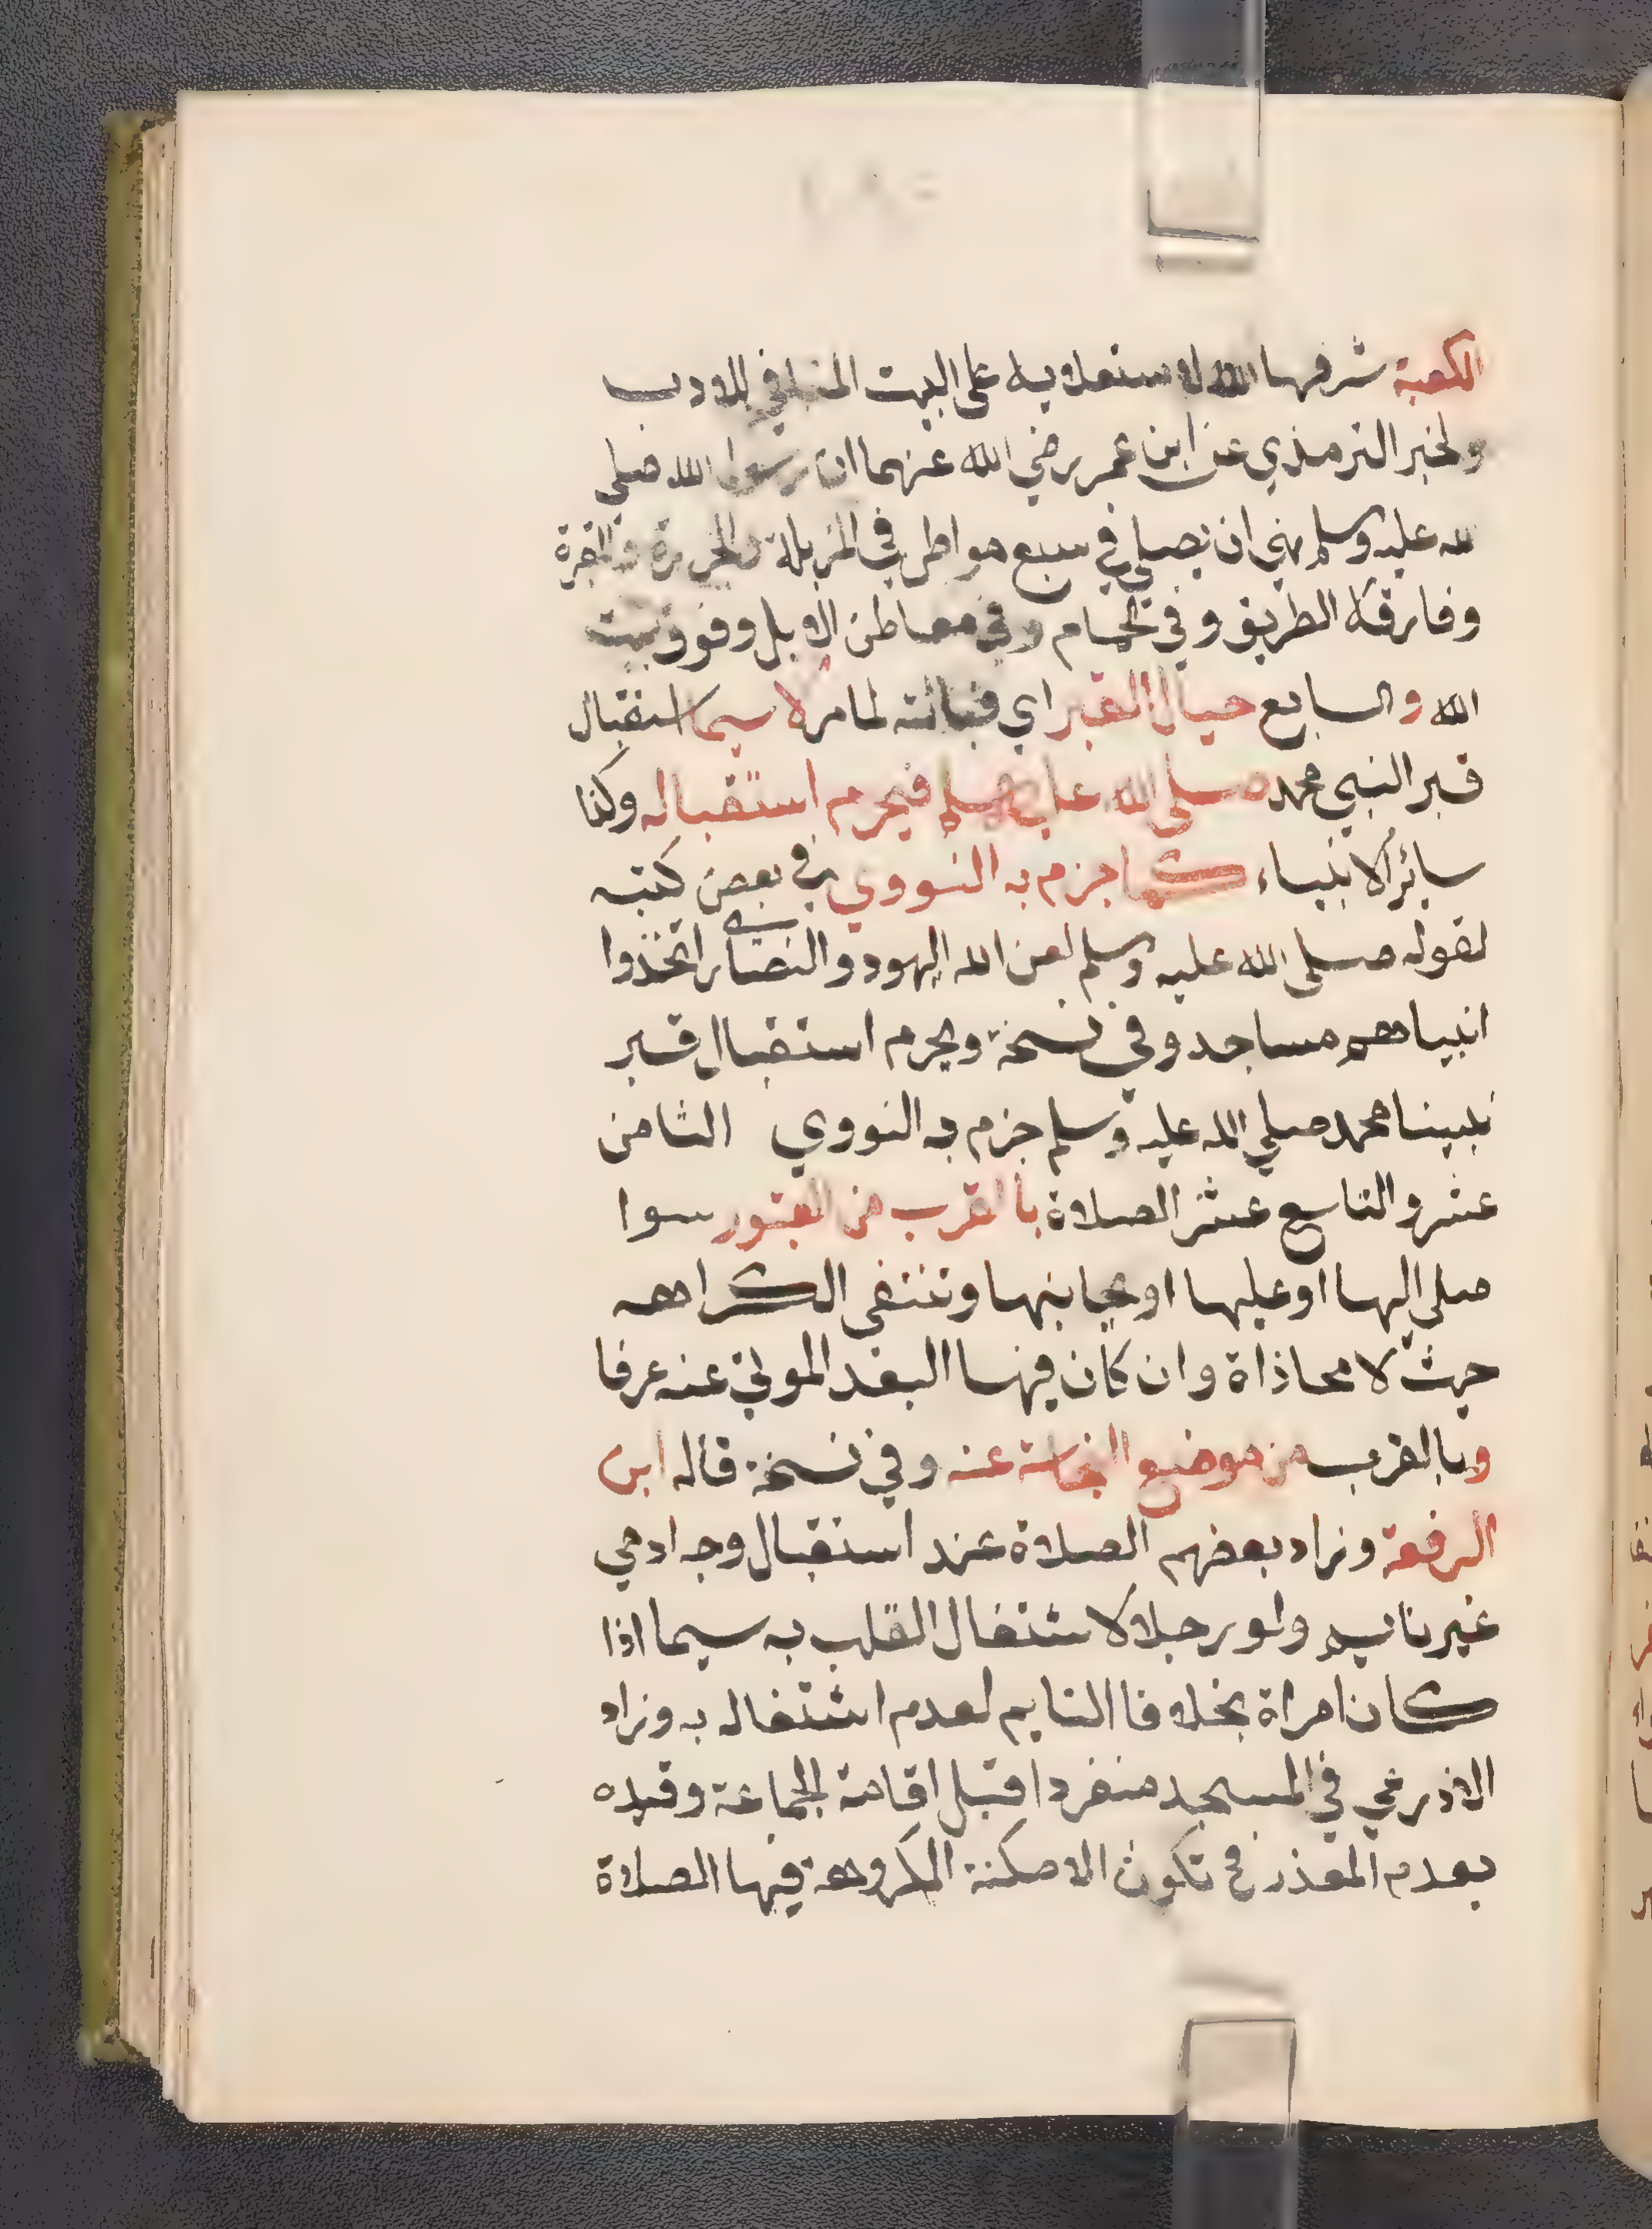 الكعبة شرفها الله لاستعلايه على البيت المنافي للادب
ولخبر الترمذي عن ابن عمر رضي الله عنهما ان رسول الله صلى
لله عليه وسلم نهى ان يصلي في سبع مواطن في المزبلة والمجزرة والمقبرة
وقارقة الطريق وفي الحمام وفي معاطن الابل وفوق بيت
الله والسابع حيال القبر اي قبالته لما مر لا سيما استقبال
قبر النبي محمد صلى الله عليه وسلم فيحرم استقباله وكذا
سائر الانبياء كما جزم به النووي في بعض كتبه
لقوله صلى الله عليه وسلم لعن الله اليهود والنصارى اتخذوا
انبياهم مساجد وفي نسخة ويحرم استقبال قبر
نبينا محمد صلي الله عليه وسلم جزم به النووي الثامن
عشر والتاسع عشر الصلاة بالقرب من القبور سوا
صلى اليها او عليها او بجانبها وتنتفى الكراهه
حيث لا محاذاة وان كان فيها البعد الموتى عنه عرفا
وبالقرب من موضع النجاسة عنه وفي نسخة قاله ابن
الرفعة وزاد بعضهم الصلاة عند استقبال وجه ادمي
غير نايم ولو رجلا لاشتغال القلب به سيما اذا
كان امراة بخلافا النايم لعدم اشتغاله به وزاد
الاذرعي في المسجد منفردا قبل اقامة الجماعة وقيده
بعدم العذر فح تكون الامكنة المكروهة فيها الصلاة